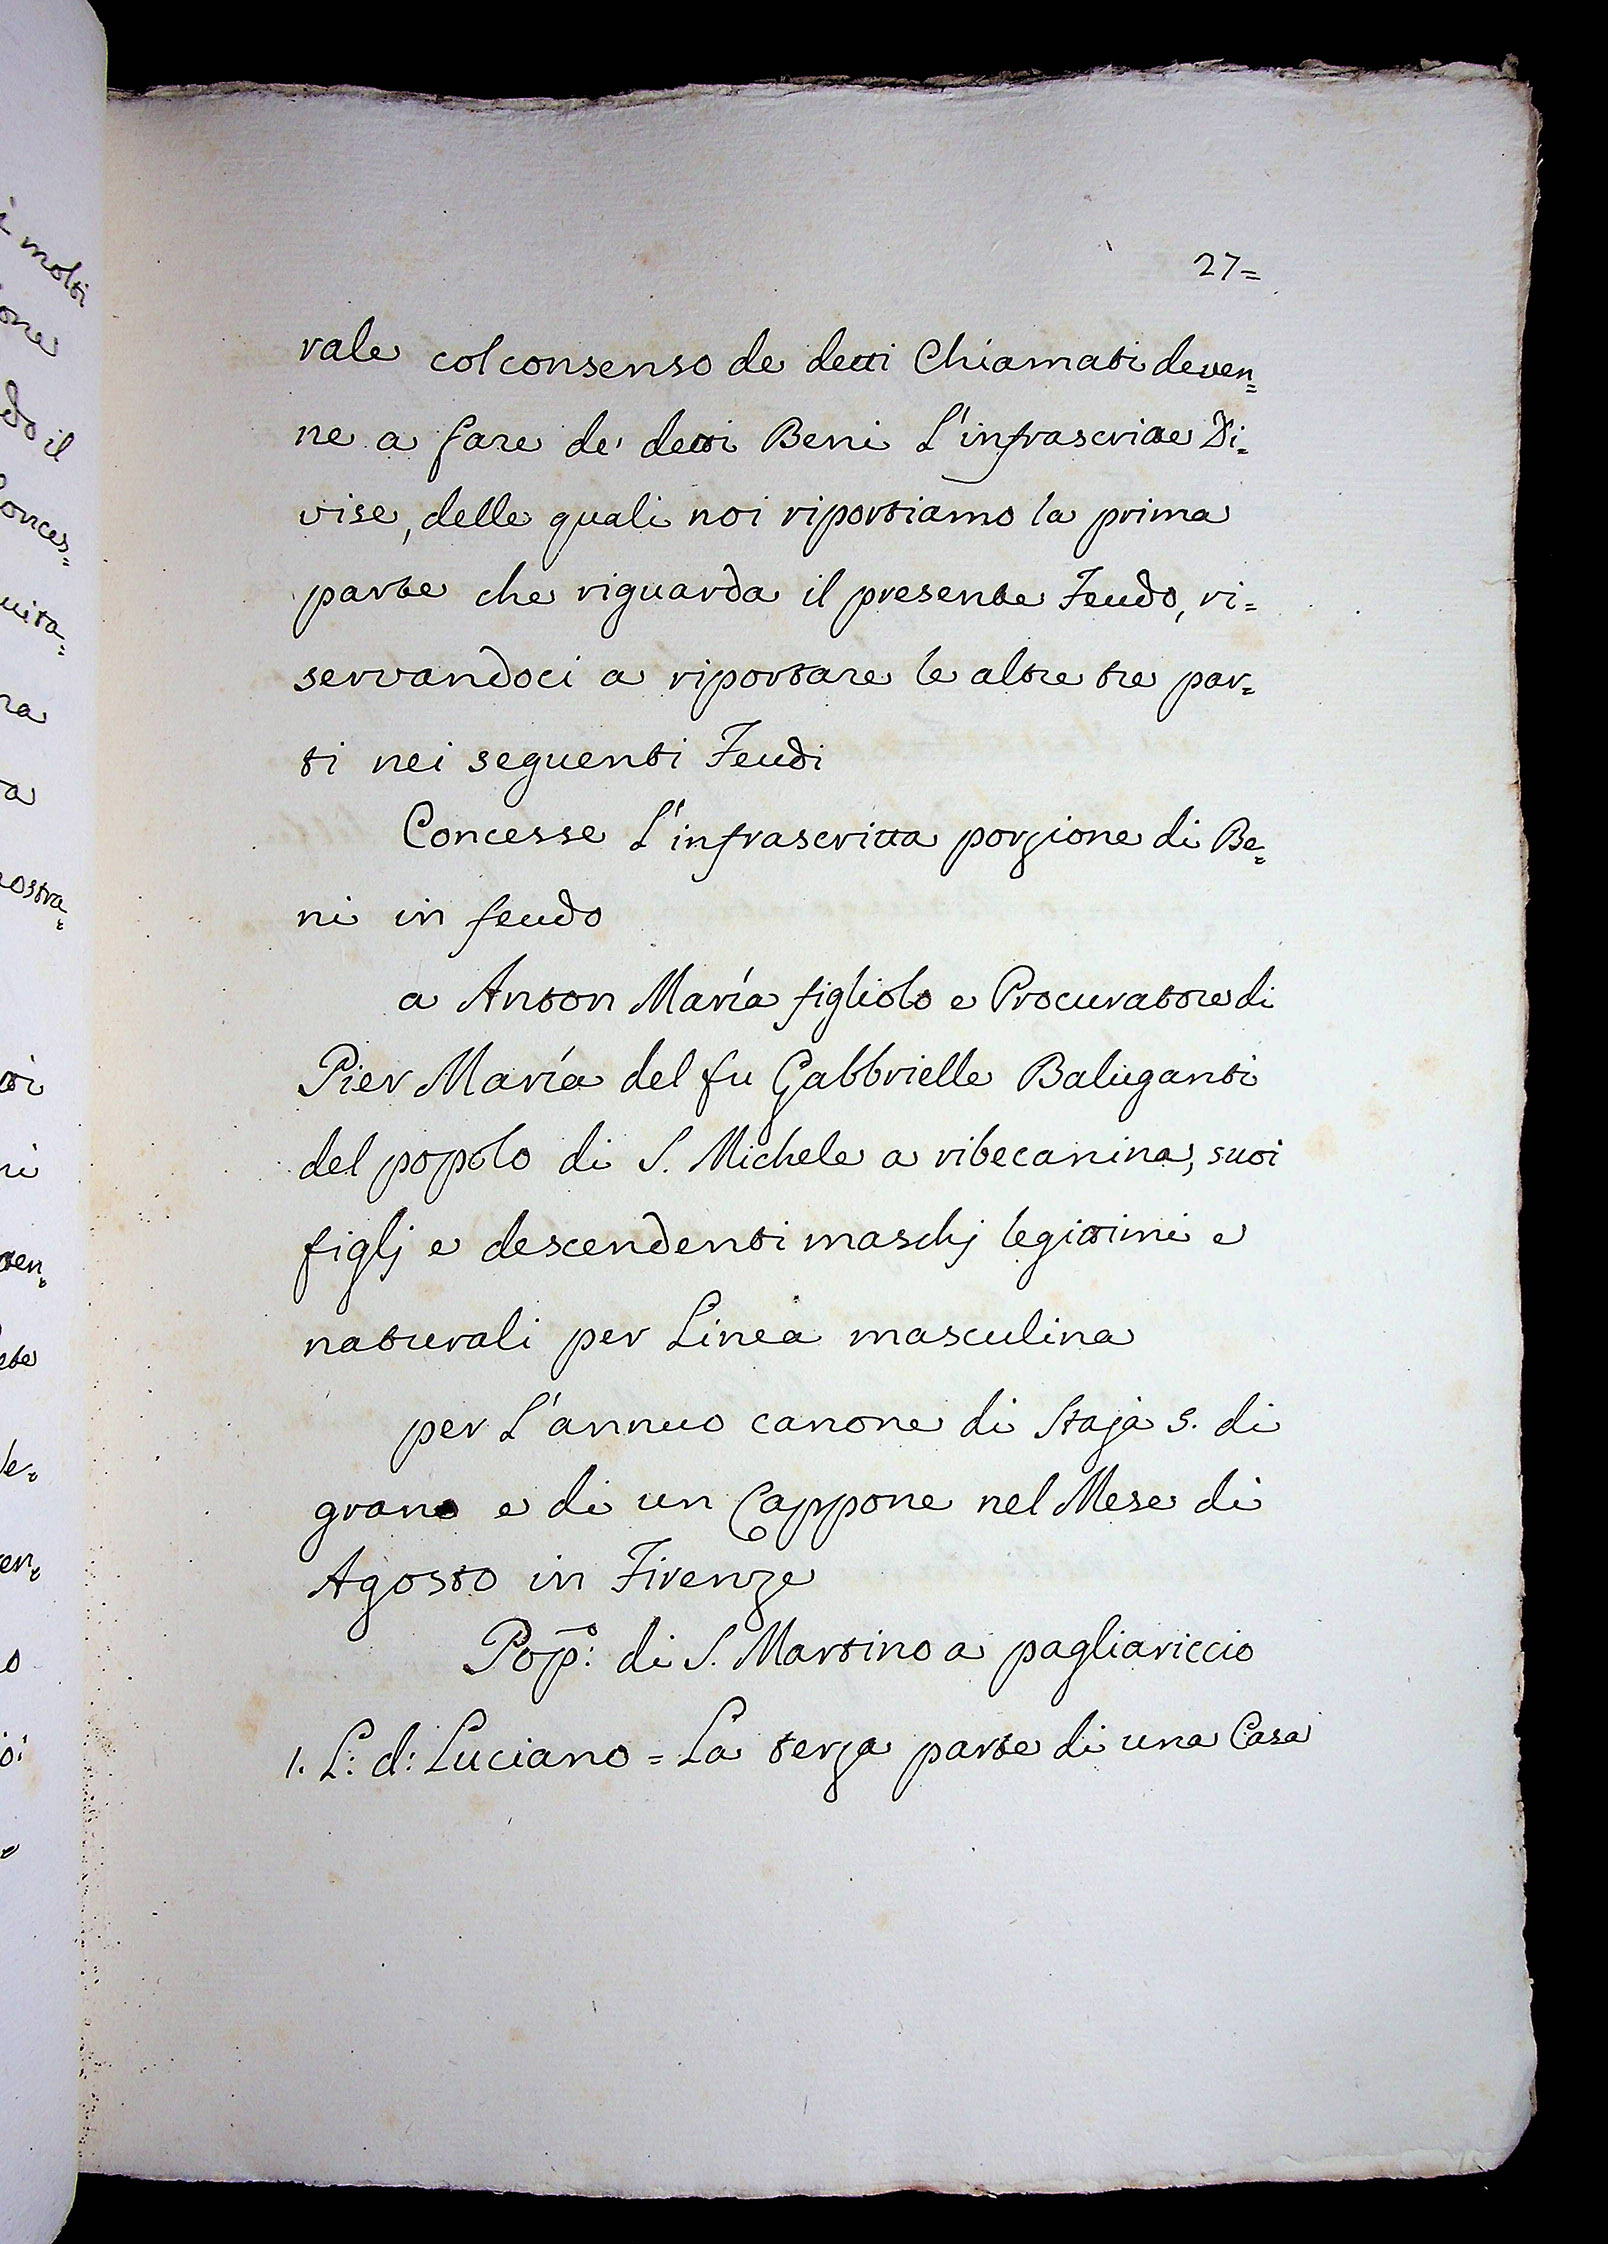 27=
rale col consenso de detti Chiamati deven=
ne a fare de' detti Beni L'infrascritte Di=
vise, delle quali noi riportiamo la prima
parte che riguarda il presente Feudo, ri=
servandoci a riportare le altre tre par=
ti nei seguenti Feudi
Concesse L'infrascritta porzione di Be=
ni in feudo
a Anton María figliolo e Procuratore di
Pier María del fu Gabbrielle Baluganti
del popolo di S. Michele a ribecanina, suoi
figlj e descendenti maschj legittimi e
naturali per Linea masculina
per L'annuo canone di Staja 5. di
grano e di un Cappone nel Mese di
Agosto in Firenze
Pop:o di S. Martino a pagliariccio
1. L: d: Luciano = La terza parte di una Casa
è molti
one
do il
Conces=
uita=
ra
ta
nostra=
tti
ni
ten=
ete
le=
en=
o
o:
e